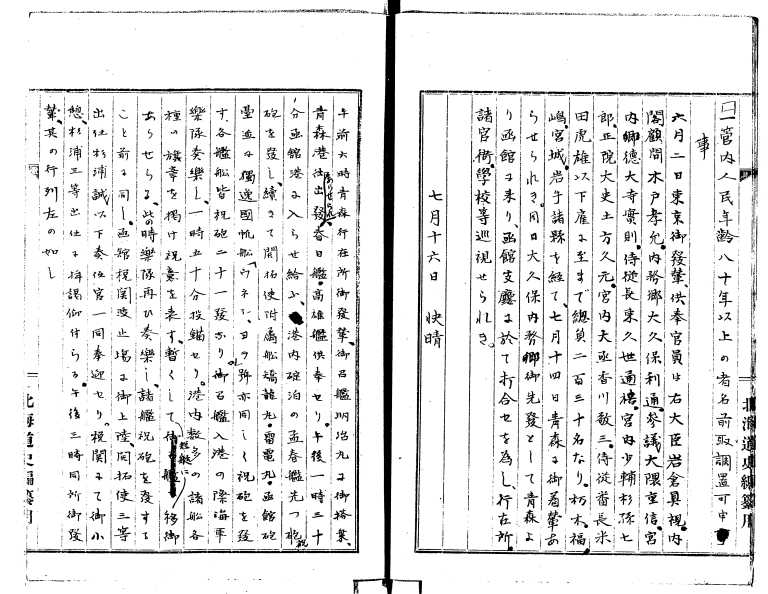 一管内人民年齢八十年以上の者名前取調置可申
事
六月二日東京御発輦、供奉官員は右大臣岩倉具視、内
閣顧問木戸孝允、内務卿大久保利通、参議大隈重信、宮
内卿徳大寺実則、侍従長東久世通禧、宮内少輔杉孫七
郎、正院大史土方久元、宮内大丞香川敬三、侍従番長米
田虎雄以下雇に至まで総員二百三十名なり、栃木、福
島、宮城、岩手諸縣を経て、七月十四日青森に御着輦あ
らせられき。同日大久保内務卿御先発として青森よ
り函館に来り、函館支廳に於て打合せを為し、行在所
諸官衙、學校等巡視せられき。
七月十六日 快晴
北海道史編纂用
午前六時青森行在所御発輦、御召艦明治丸に御搭乗、
青森港仕出発あらせられ春日艦、高雄艦供奉せり。午後一時三十
分函館港に入らせ給ふ、港内碇泊の孟春艦先つ祝
砲を發し、續きて開拓使附属船矯龍丸、雷電丸、函館砲
臺並に獨逸國帆船「ウネ」、日の號亦同しく祝砲を發
す、各艦船皆祝砲二十一發なり、御召艦入港の際海軍
樂隊奏樂し、一時五十分投錨せり。港内数多の諸船各
種の旗章を掲け祝意を表す、暫くして 移御
あらせらる、此の時樂隊再ひ奏樂し、諸艦祝砲を發すて
こと前に同し。函館税関波止場に御上陸、開拓使三等
出仕杉浦誠以下奏任官一同奉迎せり。税関にて御小
憩、杉浦三等出仕に拝謁仰付らる午後三時同所御發
輦、其の行列左の如し
北海道史編纂用